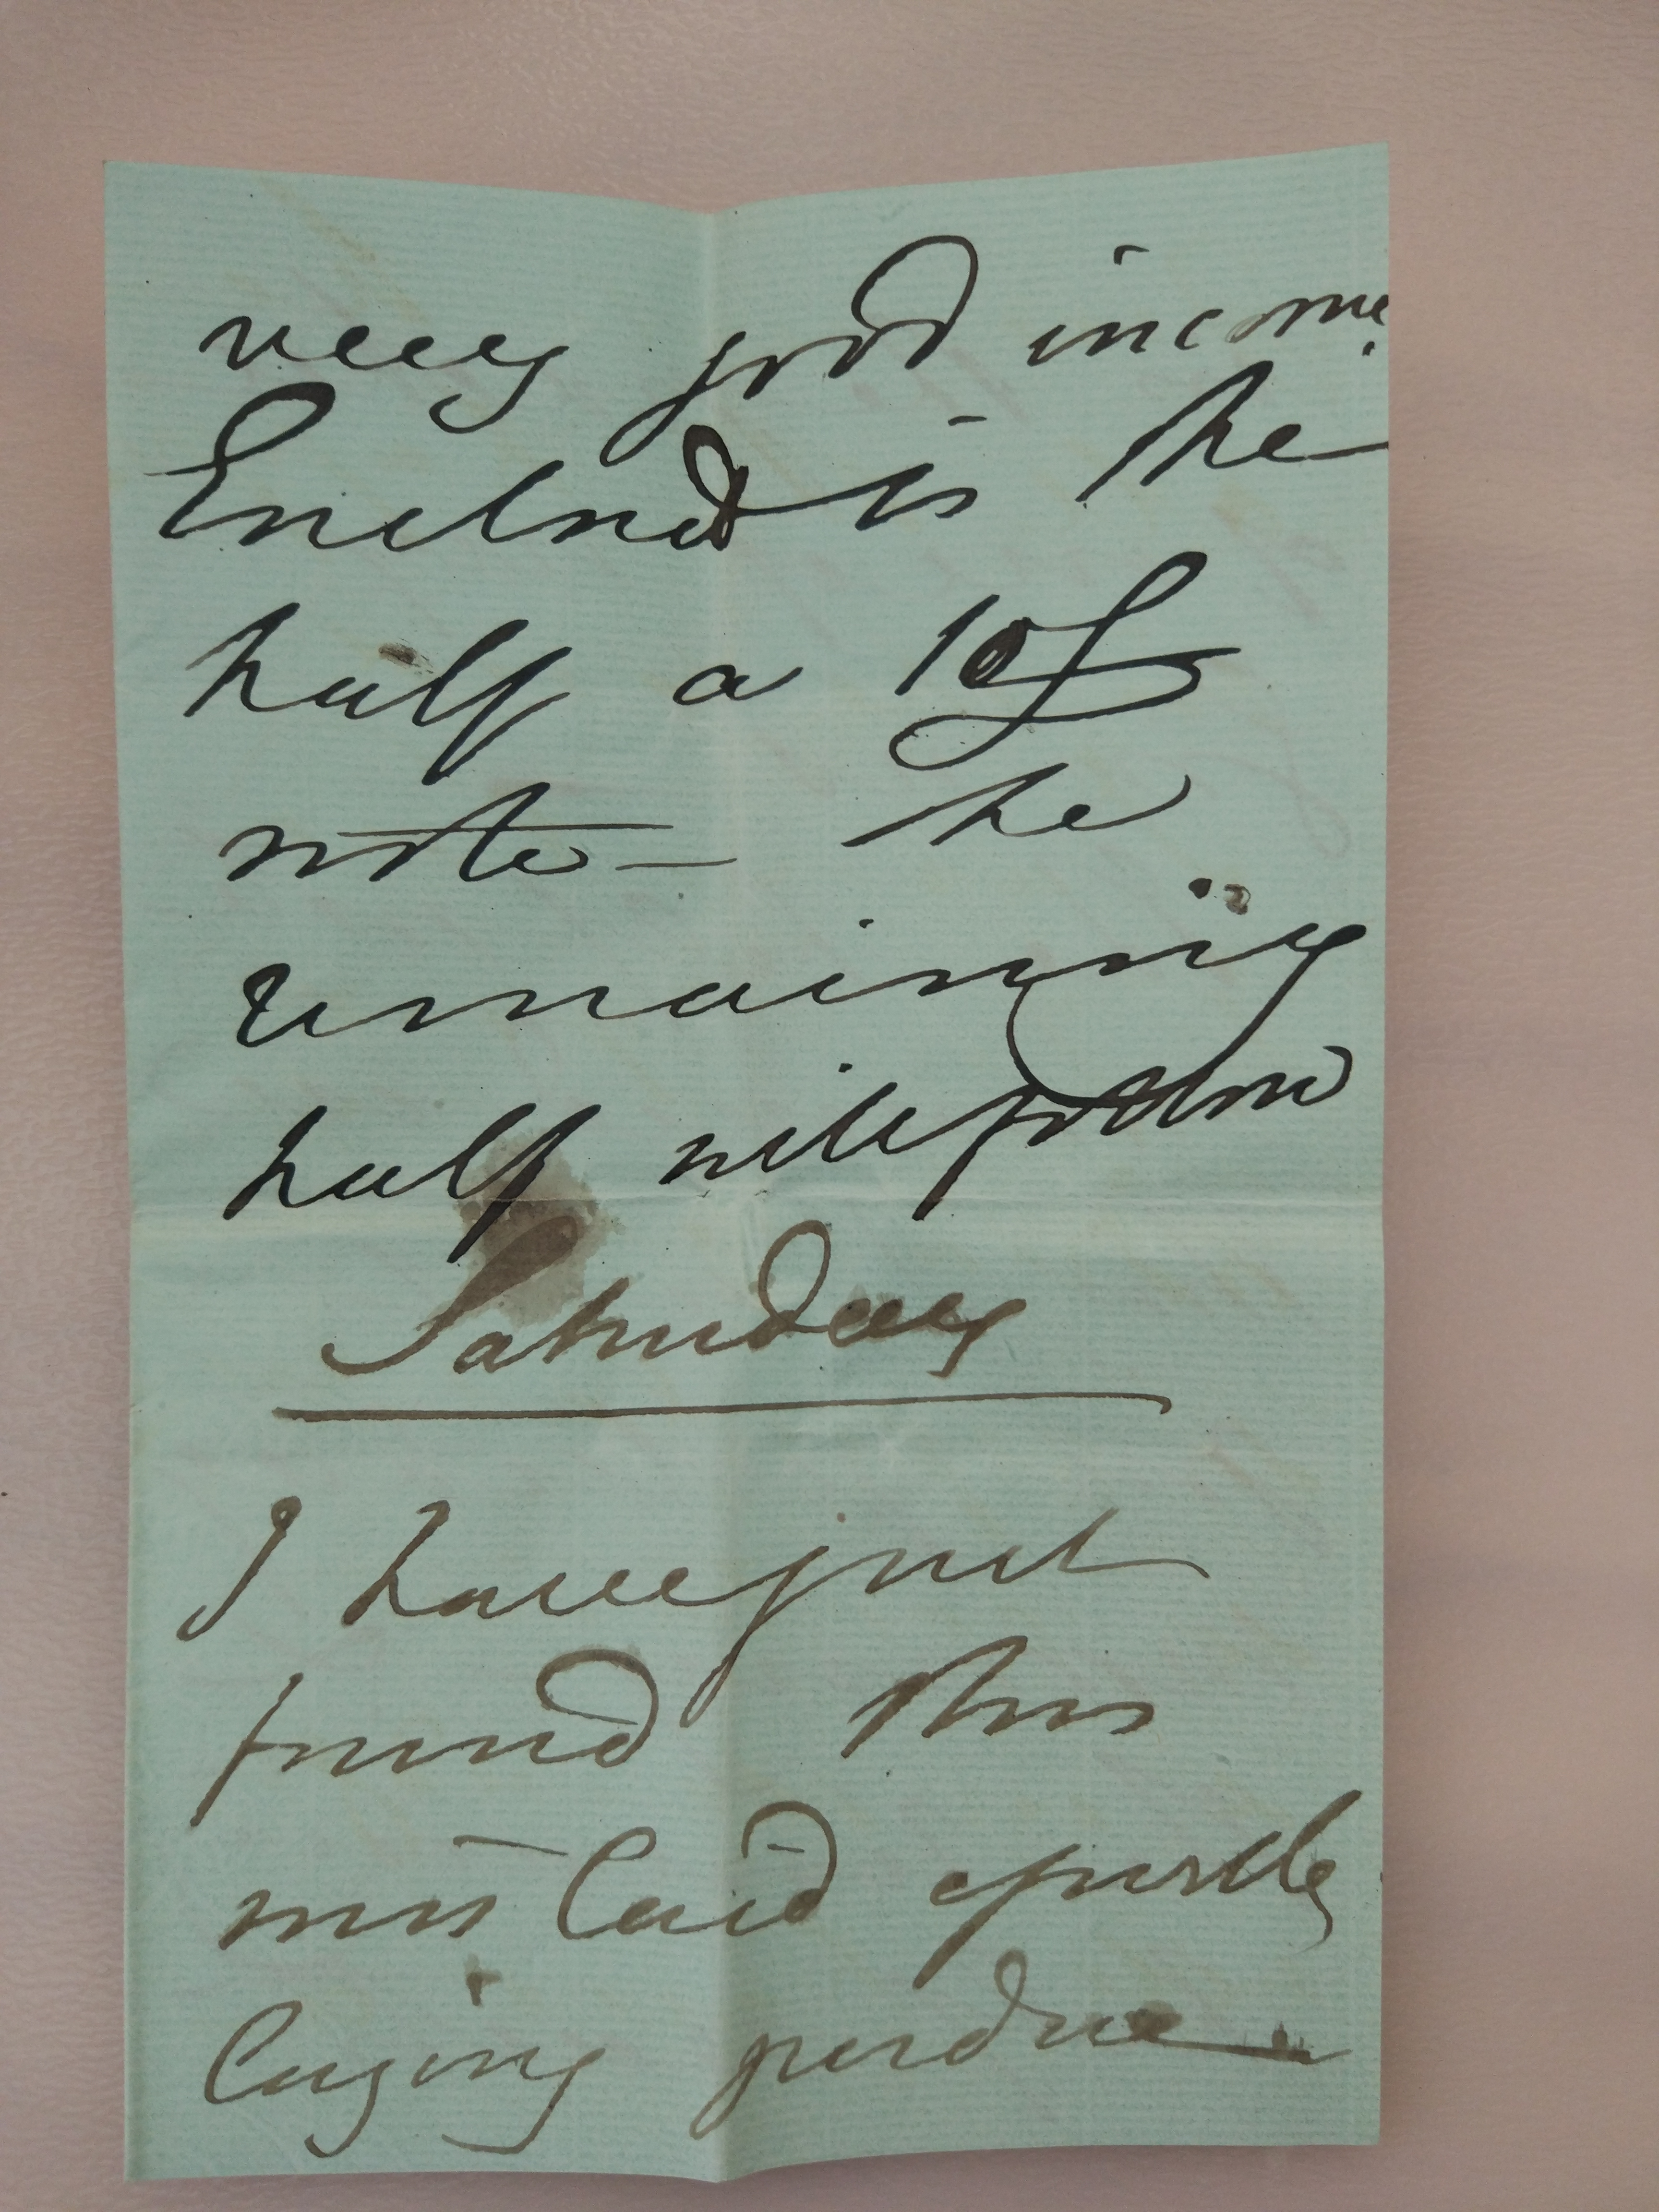 very good income.
Enclosed is the
half a 10£
note — the
remaining
half will follow
Saturday
I have just
found this
mislaid epistle
laying perdue —